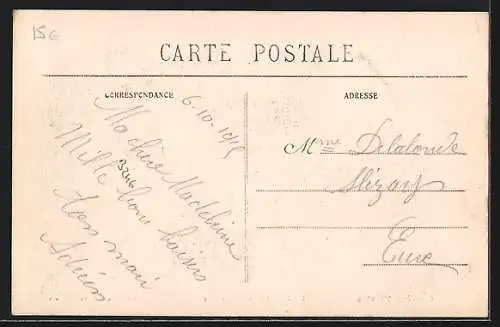 15€
CARTE POSTALE
CORRESPONDANCE
ADRESSE
6-10-1915
Ma chère Madeleine
Mille bons baisers
ton mari
Adrien
B246
Mme Delalonde
Alizay
Eure